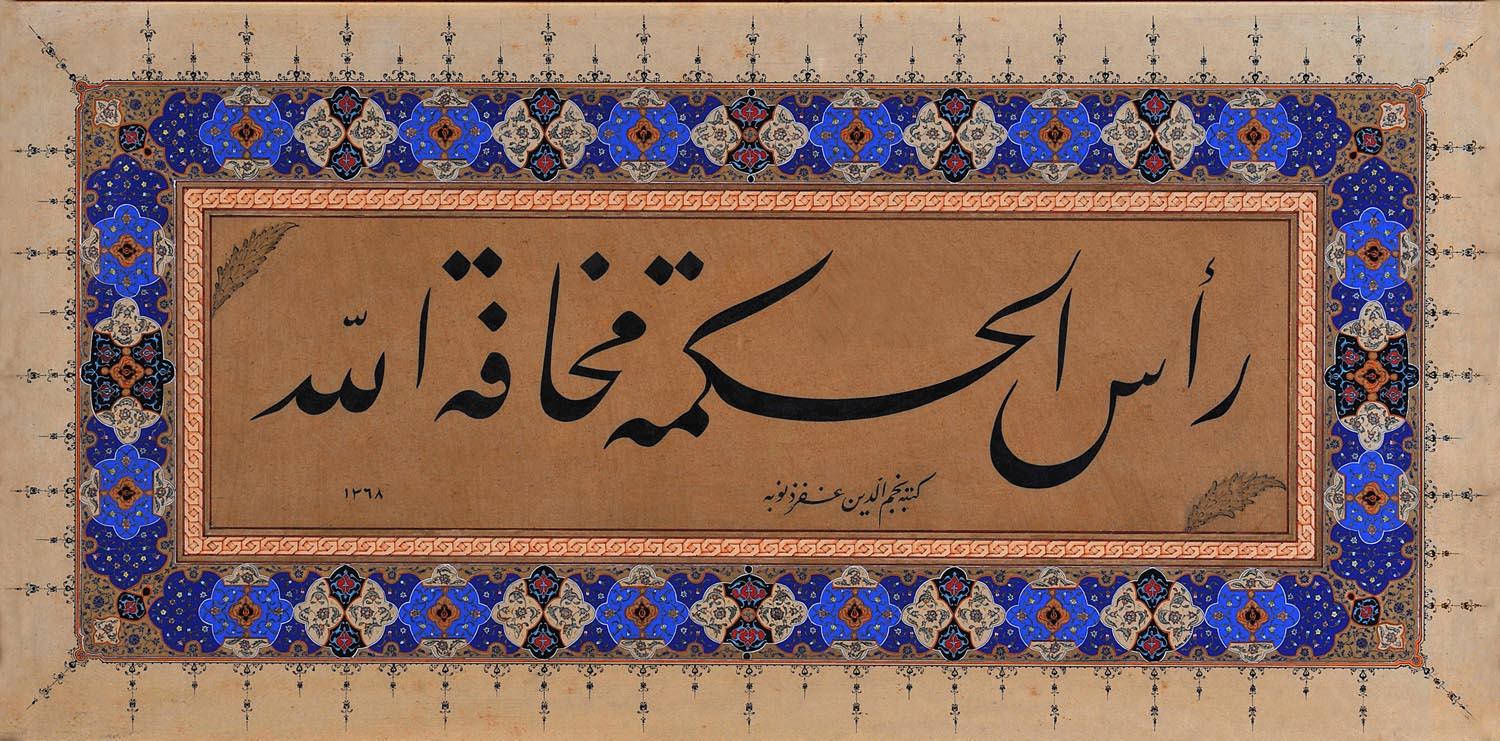 رأس الحكمة مخافة اللّه
كتبه نجم الدّين غفر ذنوبه
١٣٦٨